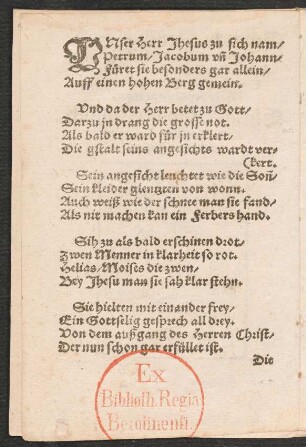 UNser Herr Jhesus zu sich nam/
Petrum/Jacobum vñ Johann/
Füret sie besonders gar allein/
Auff einen hohen Berg gemein.
Und da der Herr betet zu Gott/
Darzu jn drang die grosse not.
Als bald er ward für jn erklert/
Die gstalt seins angesichts wardt ver-
(kert.
Sein angesicht leuchtet wie die Soñ/
Sein kleider glentzten von wonn.
Auch weiß wie der schnee man sie fand/
Als nit machen kan ein Ferbers hand.
Sih zu als bald erschinen drot/
Zwen Menner in klarheit so rot.
Helias/Moises die zwen/
Bey Jhesu man sie sah klar stehn.
Sie hielten mit einander frey/
Ein Gottselig gesprech all drey.
Von dem außgang des Herren Christ/
Der nun schon gar erfüllet ist.
Die
Ex
Biblioth. Regia
Berolinensi.